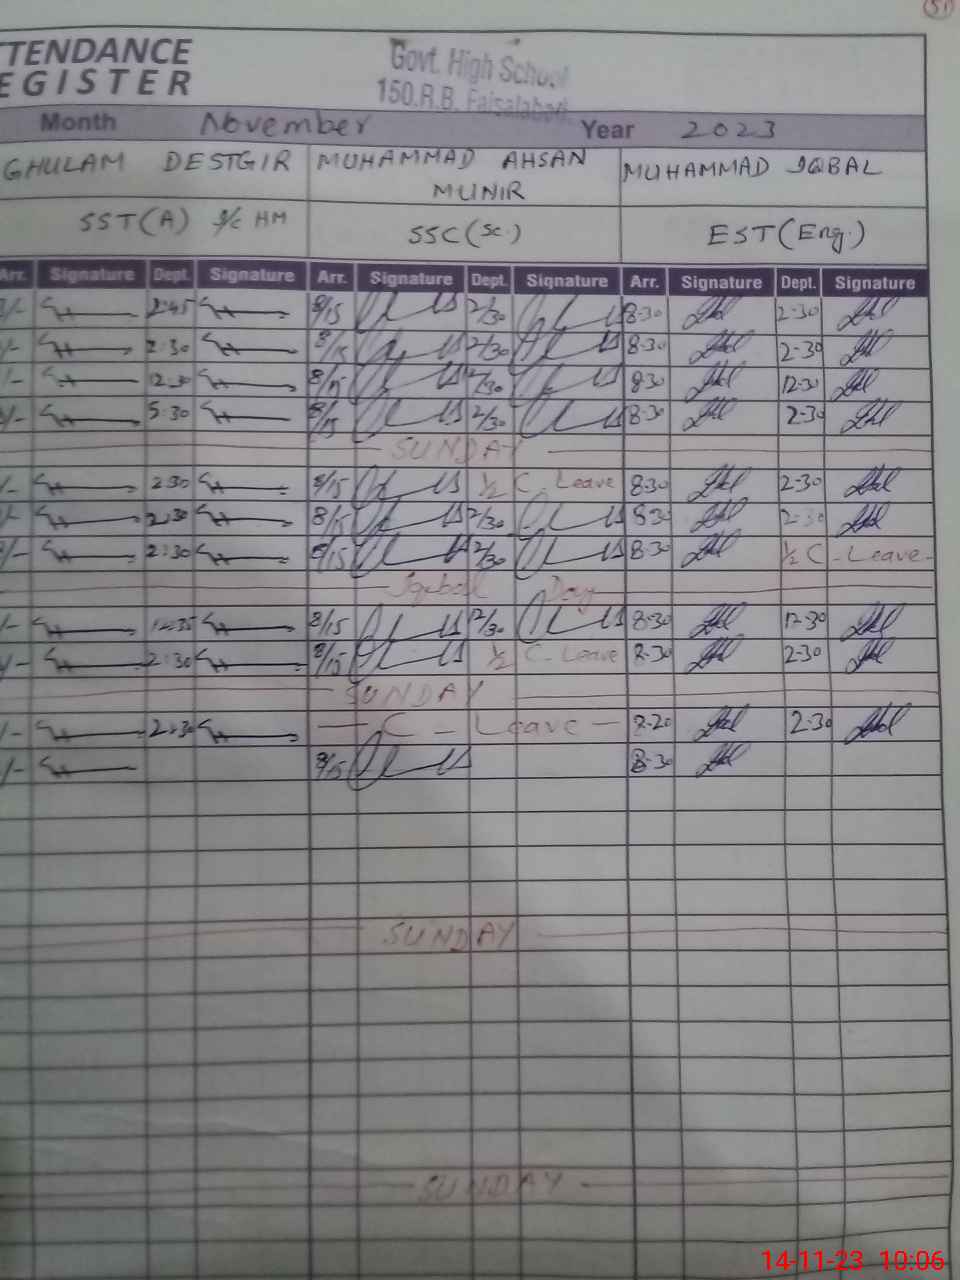 51
TTENDANCE
EGISTER
Govt. High School
150.R.B. Faisalabad.
Month November Year 2023
GHULAM DESTGIR MUHAMMAD AHSAN MUNIR MUHAMMAD IQBAL
SST(A) I/C HM SSC(Sc.) EST(Eng.)
Arr. Signature Dept. Signature Arr. Signature Dept. Signature Arr. Signature Dept. Signature
2:45 8/15 2/30 8-30 2-30
2:30 8/15 2/30 8-30 2-30
12:30 8/15 2/30 830 12-30
5:30 8/15 2/30 8-30 2-30
SUNDAY
2:30 8/15 1/2 C. Leave 8-30 2-30
2:30 8/15 2/30 8-30 2-30
2:30 8/15 2/30 8-30 1/2 C - Leave -
Iqbal Day
8/15 12/30 8-30 12-30
2:30 8/15 1/2 C - Leave 8-30 2-30
SUNDAY
2:30 — C - Leave — 8-20 2-30
8/15 8-30
SUNDAY
SUNDAY -
14-11-23 10:06